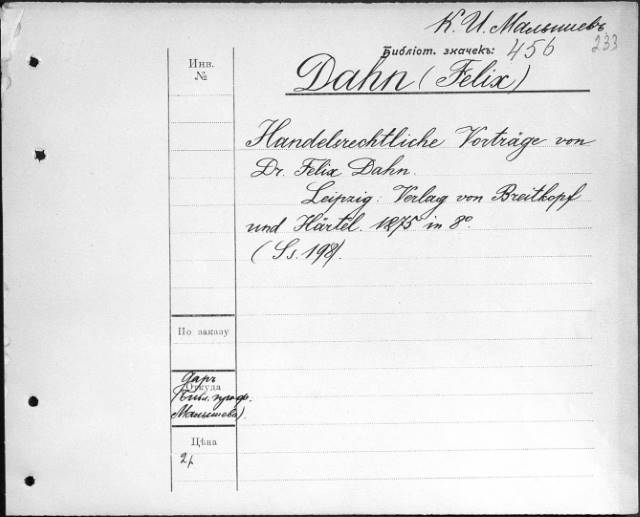 К. И. Малышевъ
Библіот. значекъ: 456 233
Инв.
№
Dahn (Felix)
Handelsrechtliche Vorträge von
Dr. Felix Dahn.
Leipzig: Verlag von Breitkopf
und Härtel. 1875 in 8º
(Ss. 198).
По заказу
Откуда
Даръ
(Библ. проф.
Малышева).
Цѣна
2р